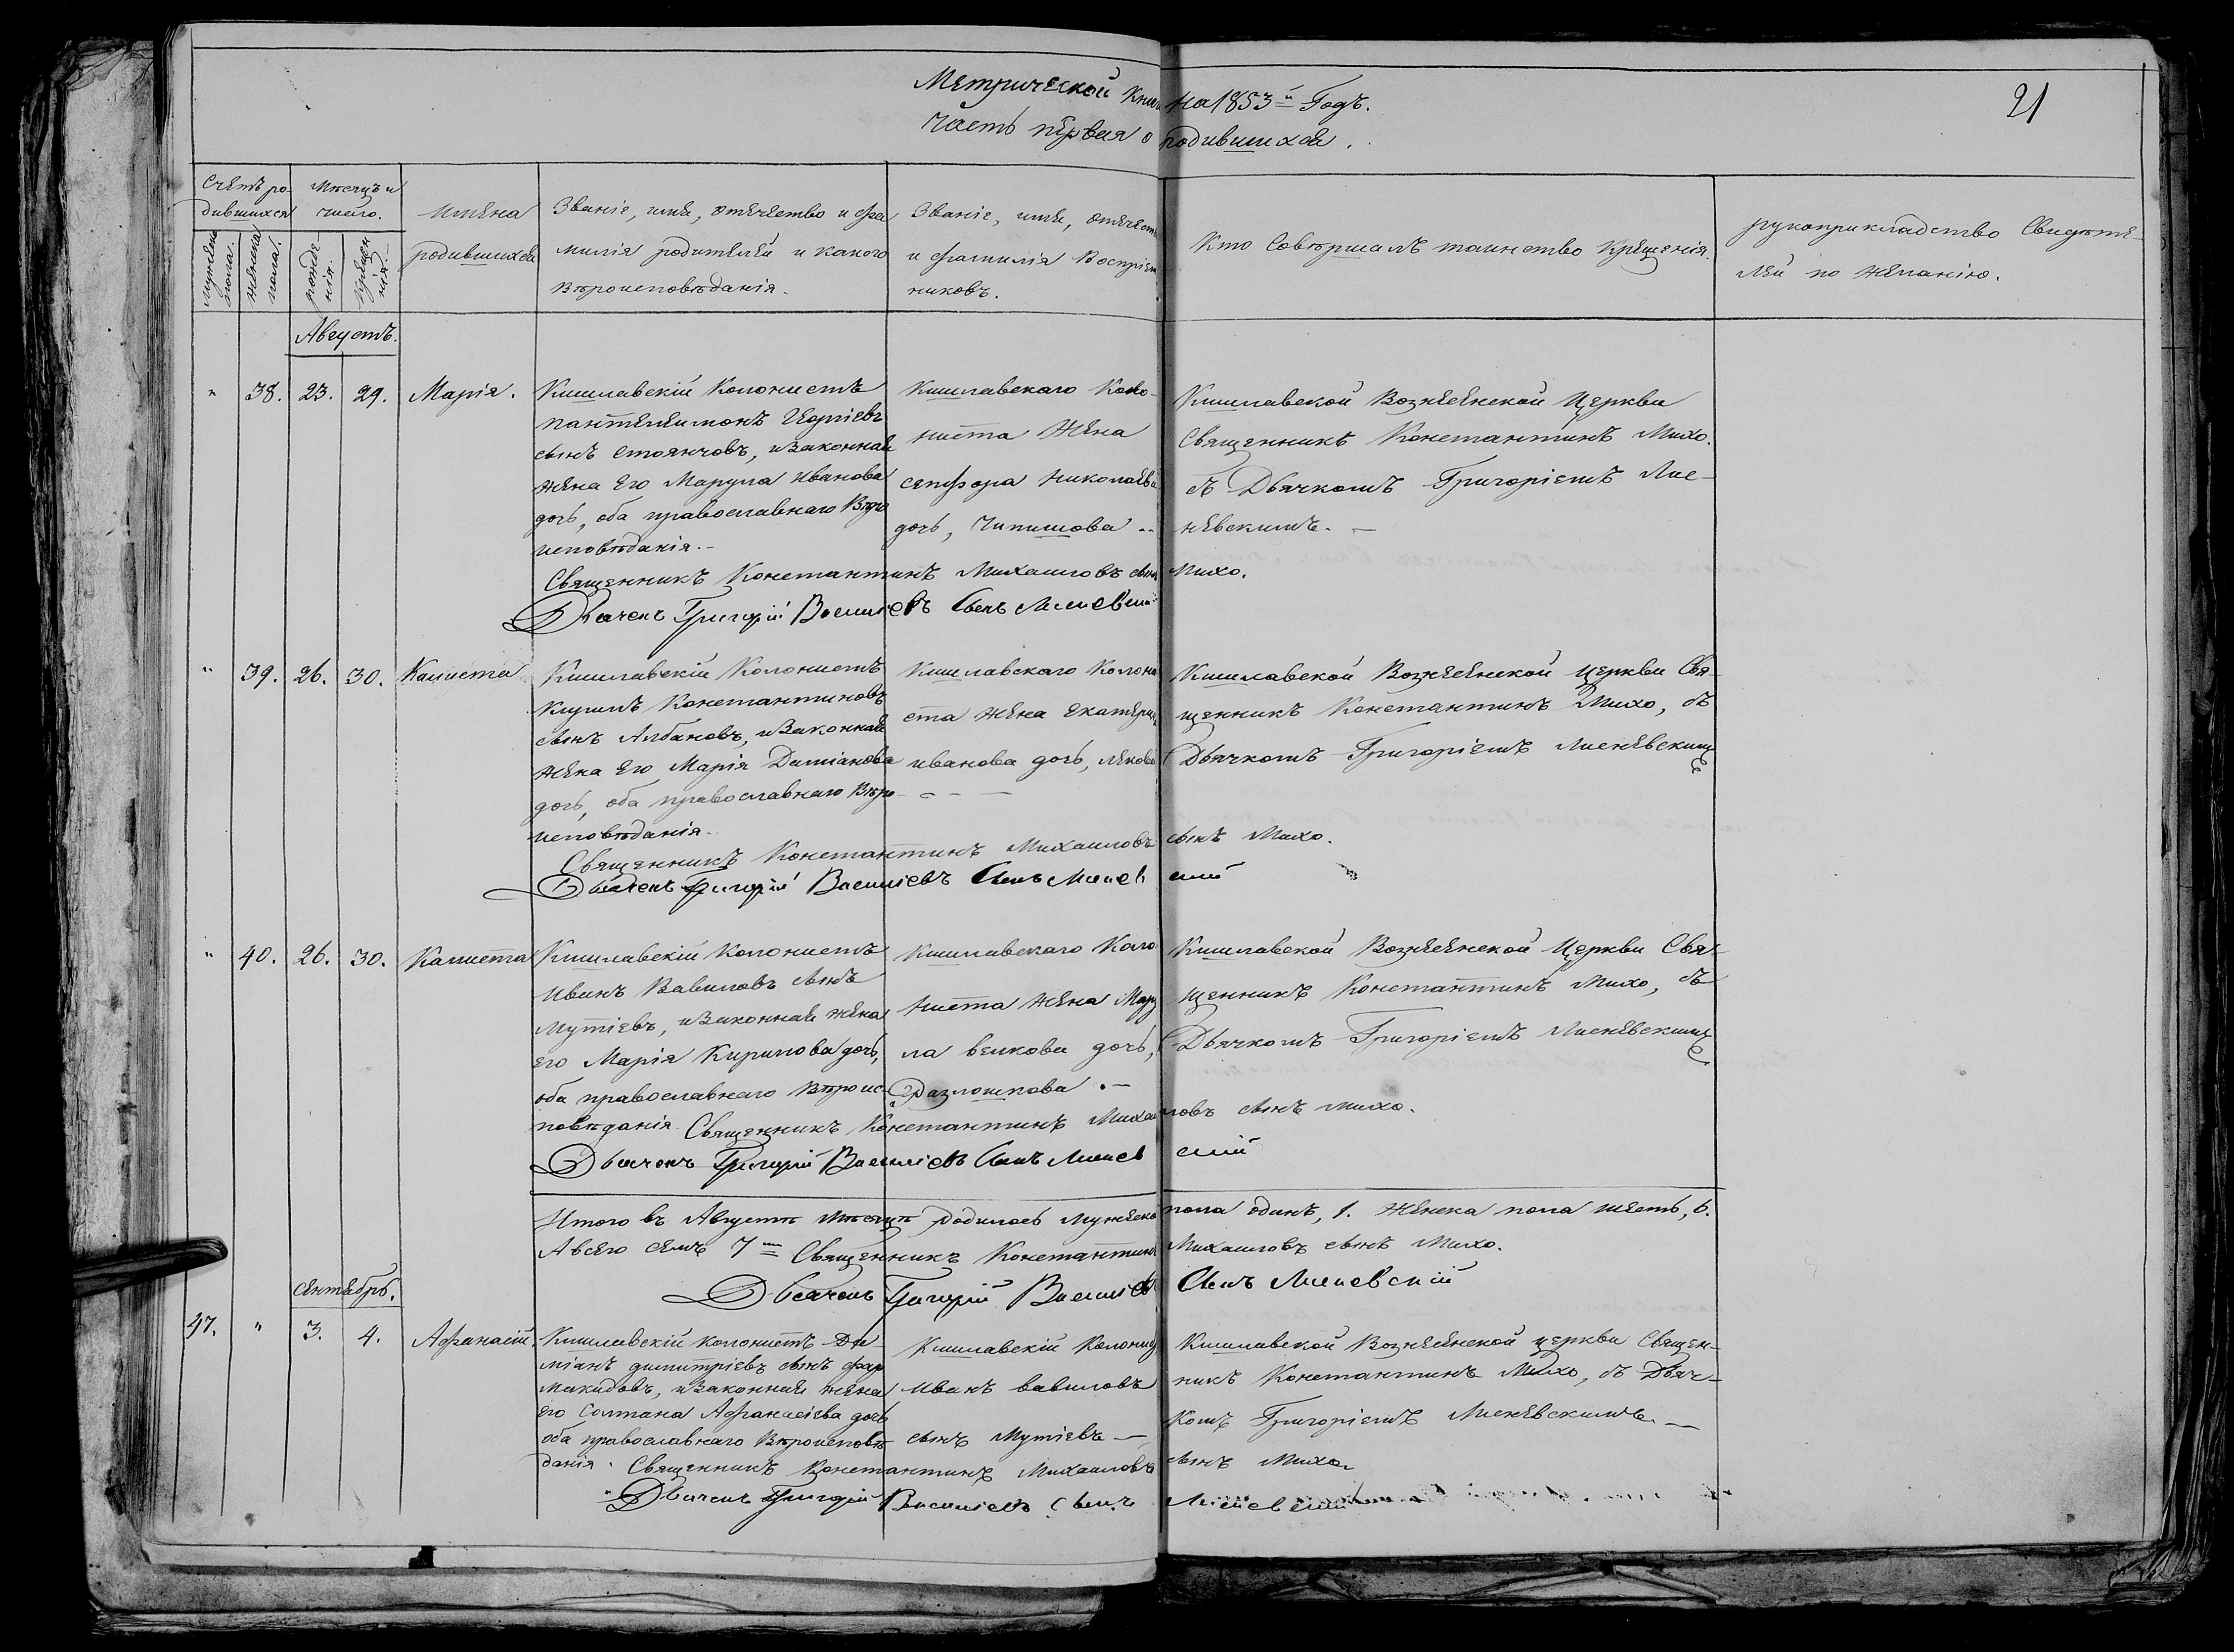 Метрической книги на 1853й Годъ.
21
часть первая о родившихся.
Счетъ ро-
дившихся
Мѣсяцъ и
число.
мужеска
пола.
женска
пола.
рожде-
нія.
крещен
нія.
имена
родившихся
Званіе, имя, отечество и фа
милія родителей и какого
вѣроисповѣданія.
Званіе, имя, отечест
и фамилія Воспріем
никовъ.
Кто Совершалъ таинство крещенія.
рукоприкладство Свидѣте-
лей по желанію.
Августъ.
" 38. 23. 29. Марія.
Кишлавскій Колонистъ
пантелеимонъ Георгіевъ
сынъ Стоянчовъ, изаконная
жена Его Марула Иванова
дочь, оба православнаго Вѣро
исповѣданія.-
Кишлавскаго Коло-
ниста Жена
сепфора Николаева
дочь, Чипишова
Кишлавской Вознесенской Церкви
Священникъ Константинъ Михо.
съ Дьячкомъ Григоріемъ Лис-
невскимъ. -
Священникъ Константинъ Михаиловъ сынъ Михо.
Дьячекъ Григорій Василіевъ Сынъ Лисневскій
" 39. 26. 30. Калиста
Кишлавскій Колонистъ
Константиновъ
сынъ Албановъ, изаконная
жена Его Марія Даміанова
дочь, оба православнаго Вѣро
исповѣданія.
Кишлавскаго Колони
ста жена Екатерина
иванова дочь, лекова
Кишлавской Вознесенской церкви Свя-
щенникъ Константинъ Михо, съ
Дьячкомъ Григоріемъ Лисневскимъ
Священникъ Константинъ Михаиловъ сынъ Михо.
Дьячекъ Григорій Василіевъ Сынъ Лисневскій
" 40. 26. 30. Калиста
Кишлавскій Колонистъ
Иванъ Вавиловъ сынъ
Мутіевъ, изаконная жена
его Марія Кирилова дочь,
оба православнаго Вѣроис-
повѣданія.
Кишлавскаго Коло
ниста жена Мару
ла велкова дочь,
Кишлавской Вознесенской Церкви Свя-
щенникъ Константинъ Михо, съ
Дьячкомъ Григоріемъ Лисневскимъ
Священникъ Константинъ Михаиловъ сынъ михо.
Дьячекъ Григорій Василіевъ Сынъ Лисневскій
Итого въ Августѣ мѣсяцѣ родилось мужеска пола одинъ, 1. женска пола шесть, 6.
А всего семъ 7мъ Священникъ Константинъ Михаиловъ сынъ Михо.
Дьячекъ Григорій Василіевъ Сынъ Лисневскій
сентябрь.
47. " 3. 4. Афанасій.
Кишлавскій колонистъ Да-
міанъ димитріевъ сынъ фар
макидовъ, изаконная жена
его Солтана Афанасіева дочь
оба православнаго Вѣроисповѣ
данія.
Кишлавскій Колонис
иванъ вавиловъ
сынъ Мутіевъ —
Кишлавской Вознесенской церкви Священ-
никъ Константинъ Михо, съ Дьяч-
комъ Григоріемъ Лисневскимъ. —
Священникъ Константинъ Михаиловъ сынъ Михо.
Дьячекъ Григорій Василіевъ Сынъ Лисневскій